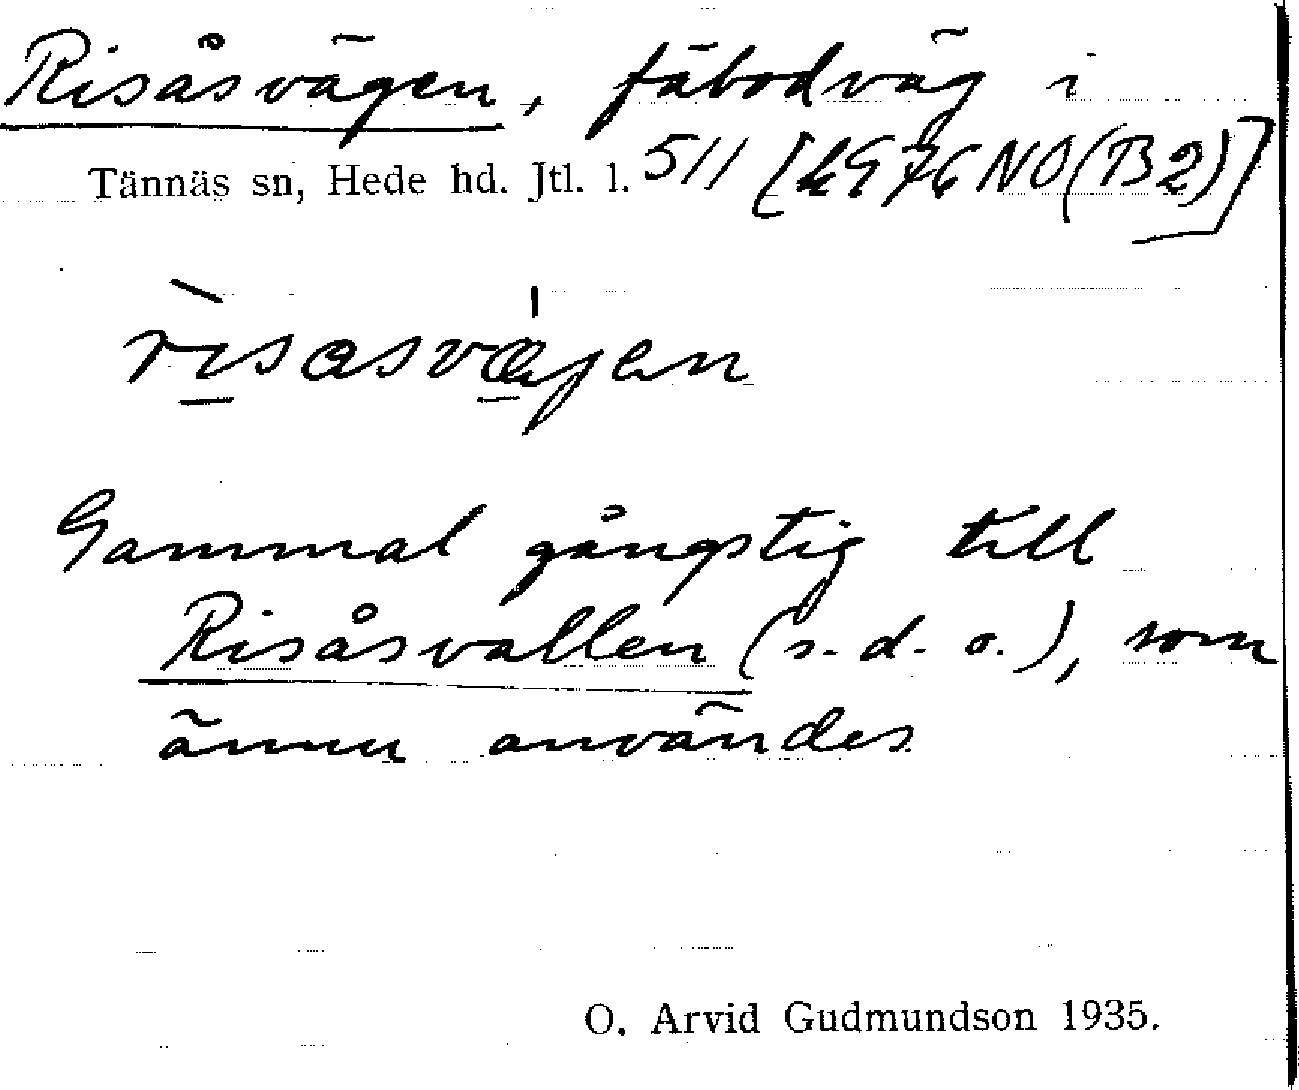 Risåsvägen, fäbodväg i
Tännäs sn, Hede hd. Jtl. l. 511 [k976NO(B2)]
risasvæjen
Gammal gångstig till
Risåsvallen (s.d.o.), som
ännu användes
O. Arvid Gudmundson 1935.